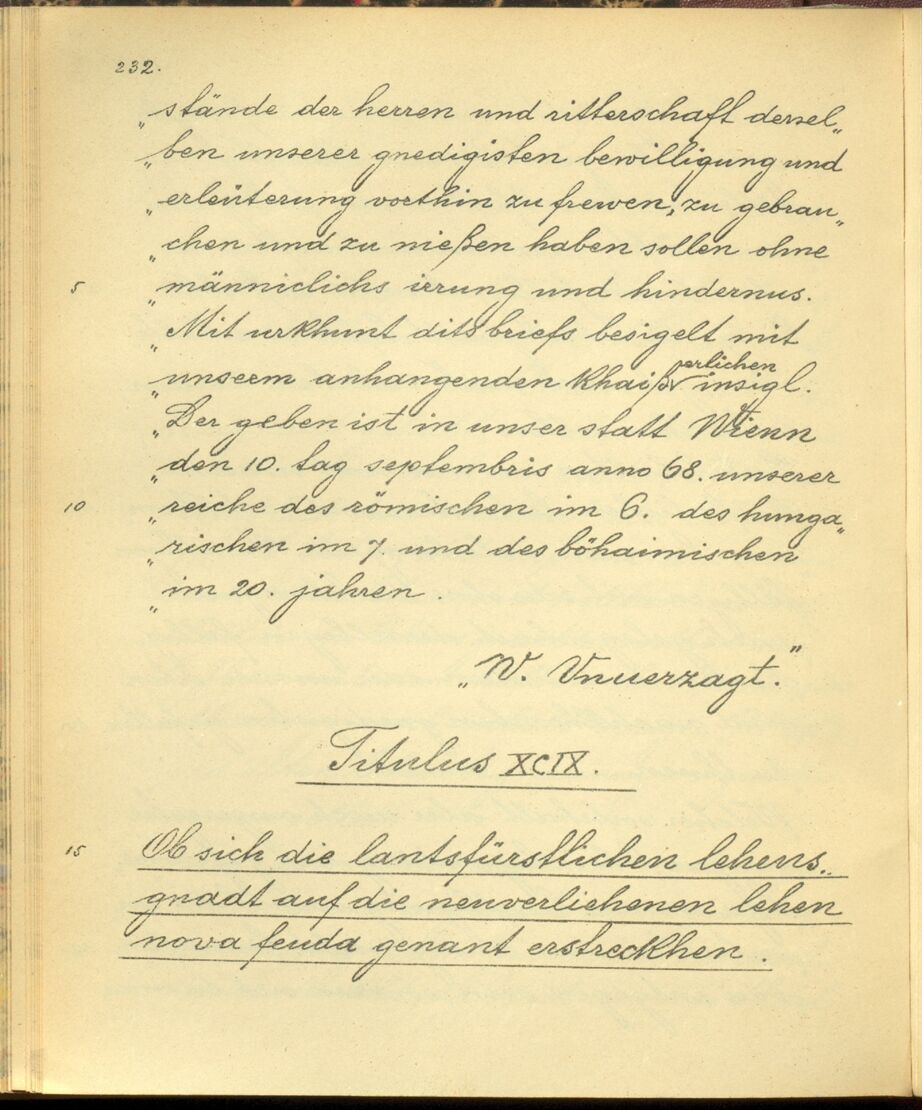 232.
„stände der herren und ritterschaft dersel„
„ben unserer gnedigisten bewilligung und
„erleüterung vorthin zu frewen, zu gebrau„
„chen und zu nießen haben sollen ohne
5 „männiclichs irrung und hindernus.
„Mit urkhunt dits briefs besigelt mit
„unserm anhangenden khaißerlichen insigl.
„Der geben ist in unser statt Wienn
„den 10. tag septembris anno 68. unserer
10 „reiche des römischen im 6. des hunga„
„rischen im 7. und des böhaimischen
„im 20. jahren.
„W. Vnuerzagt."
Titulus XCIX.
15 Ob sich die lantsfürstlichen lehens„
gnadt auf die neuverliehenen lehen
nova feuda genant erstreckhen.